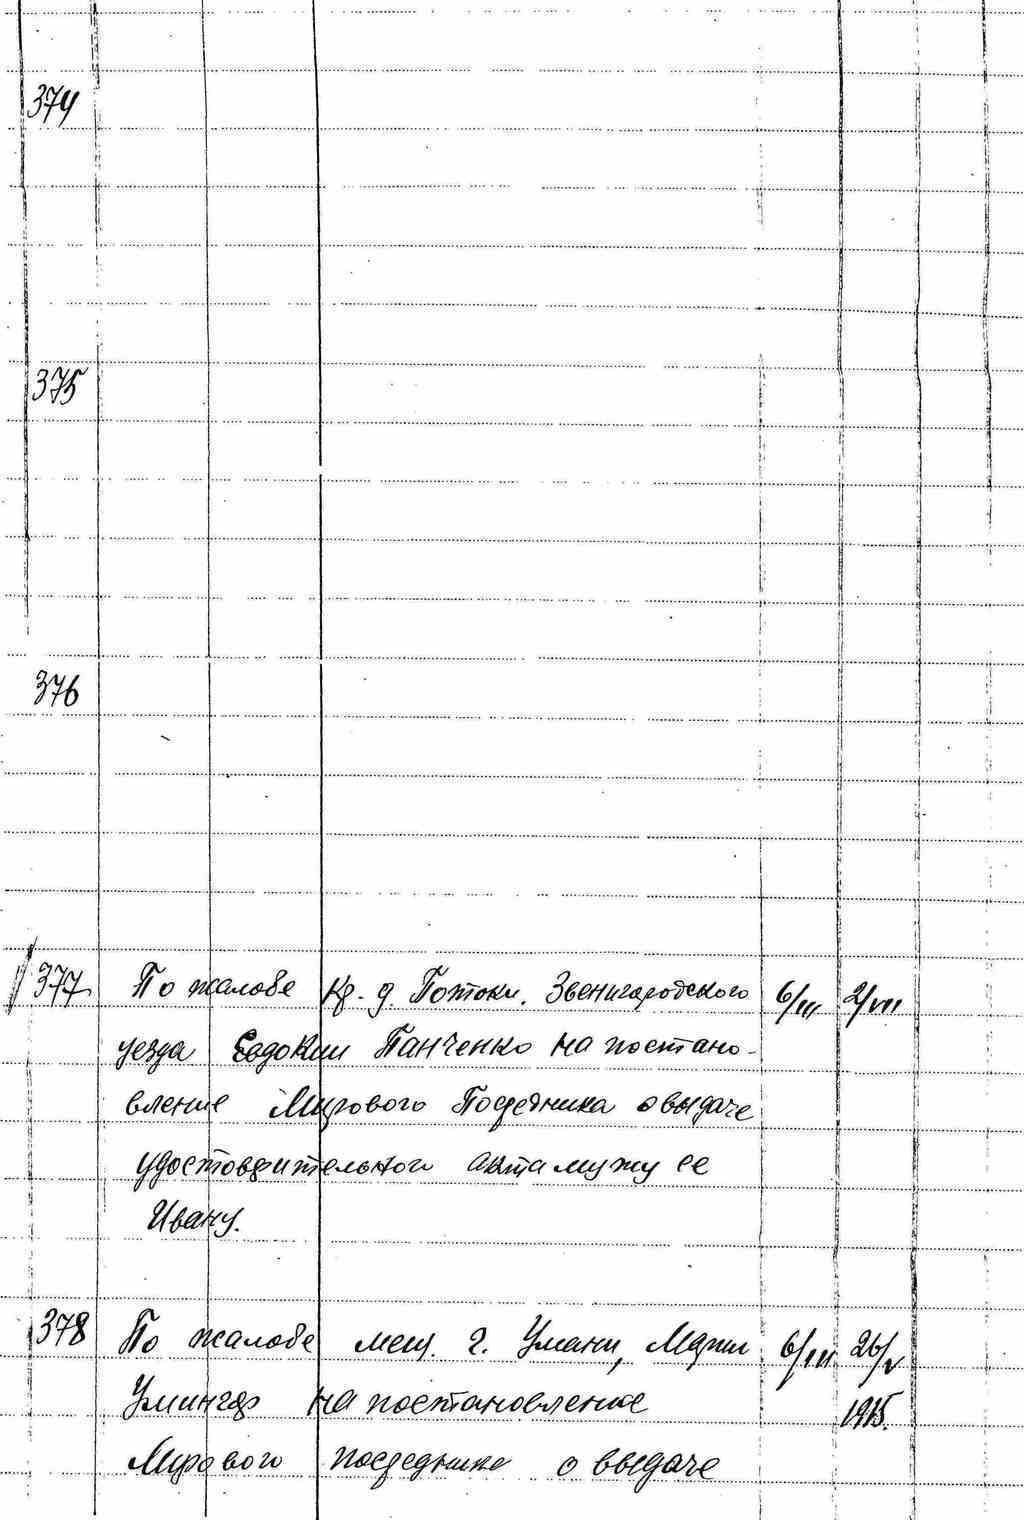 374
375
376
377 По жалобе кр. д. Потоки, Звенигородского 6/III 2/VII
уезда Евдокии Панченко на постано-
вление Мирового Посредника о выдаче
удостоверительного акта мужу ее
Ивану.
378 По жалобе мещ. г. Умани, Марии 6/III 26/V
на постановление 1915.
Мирового посредника о выдаче